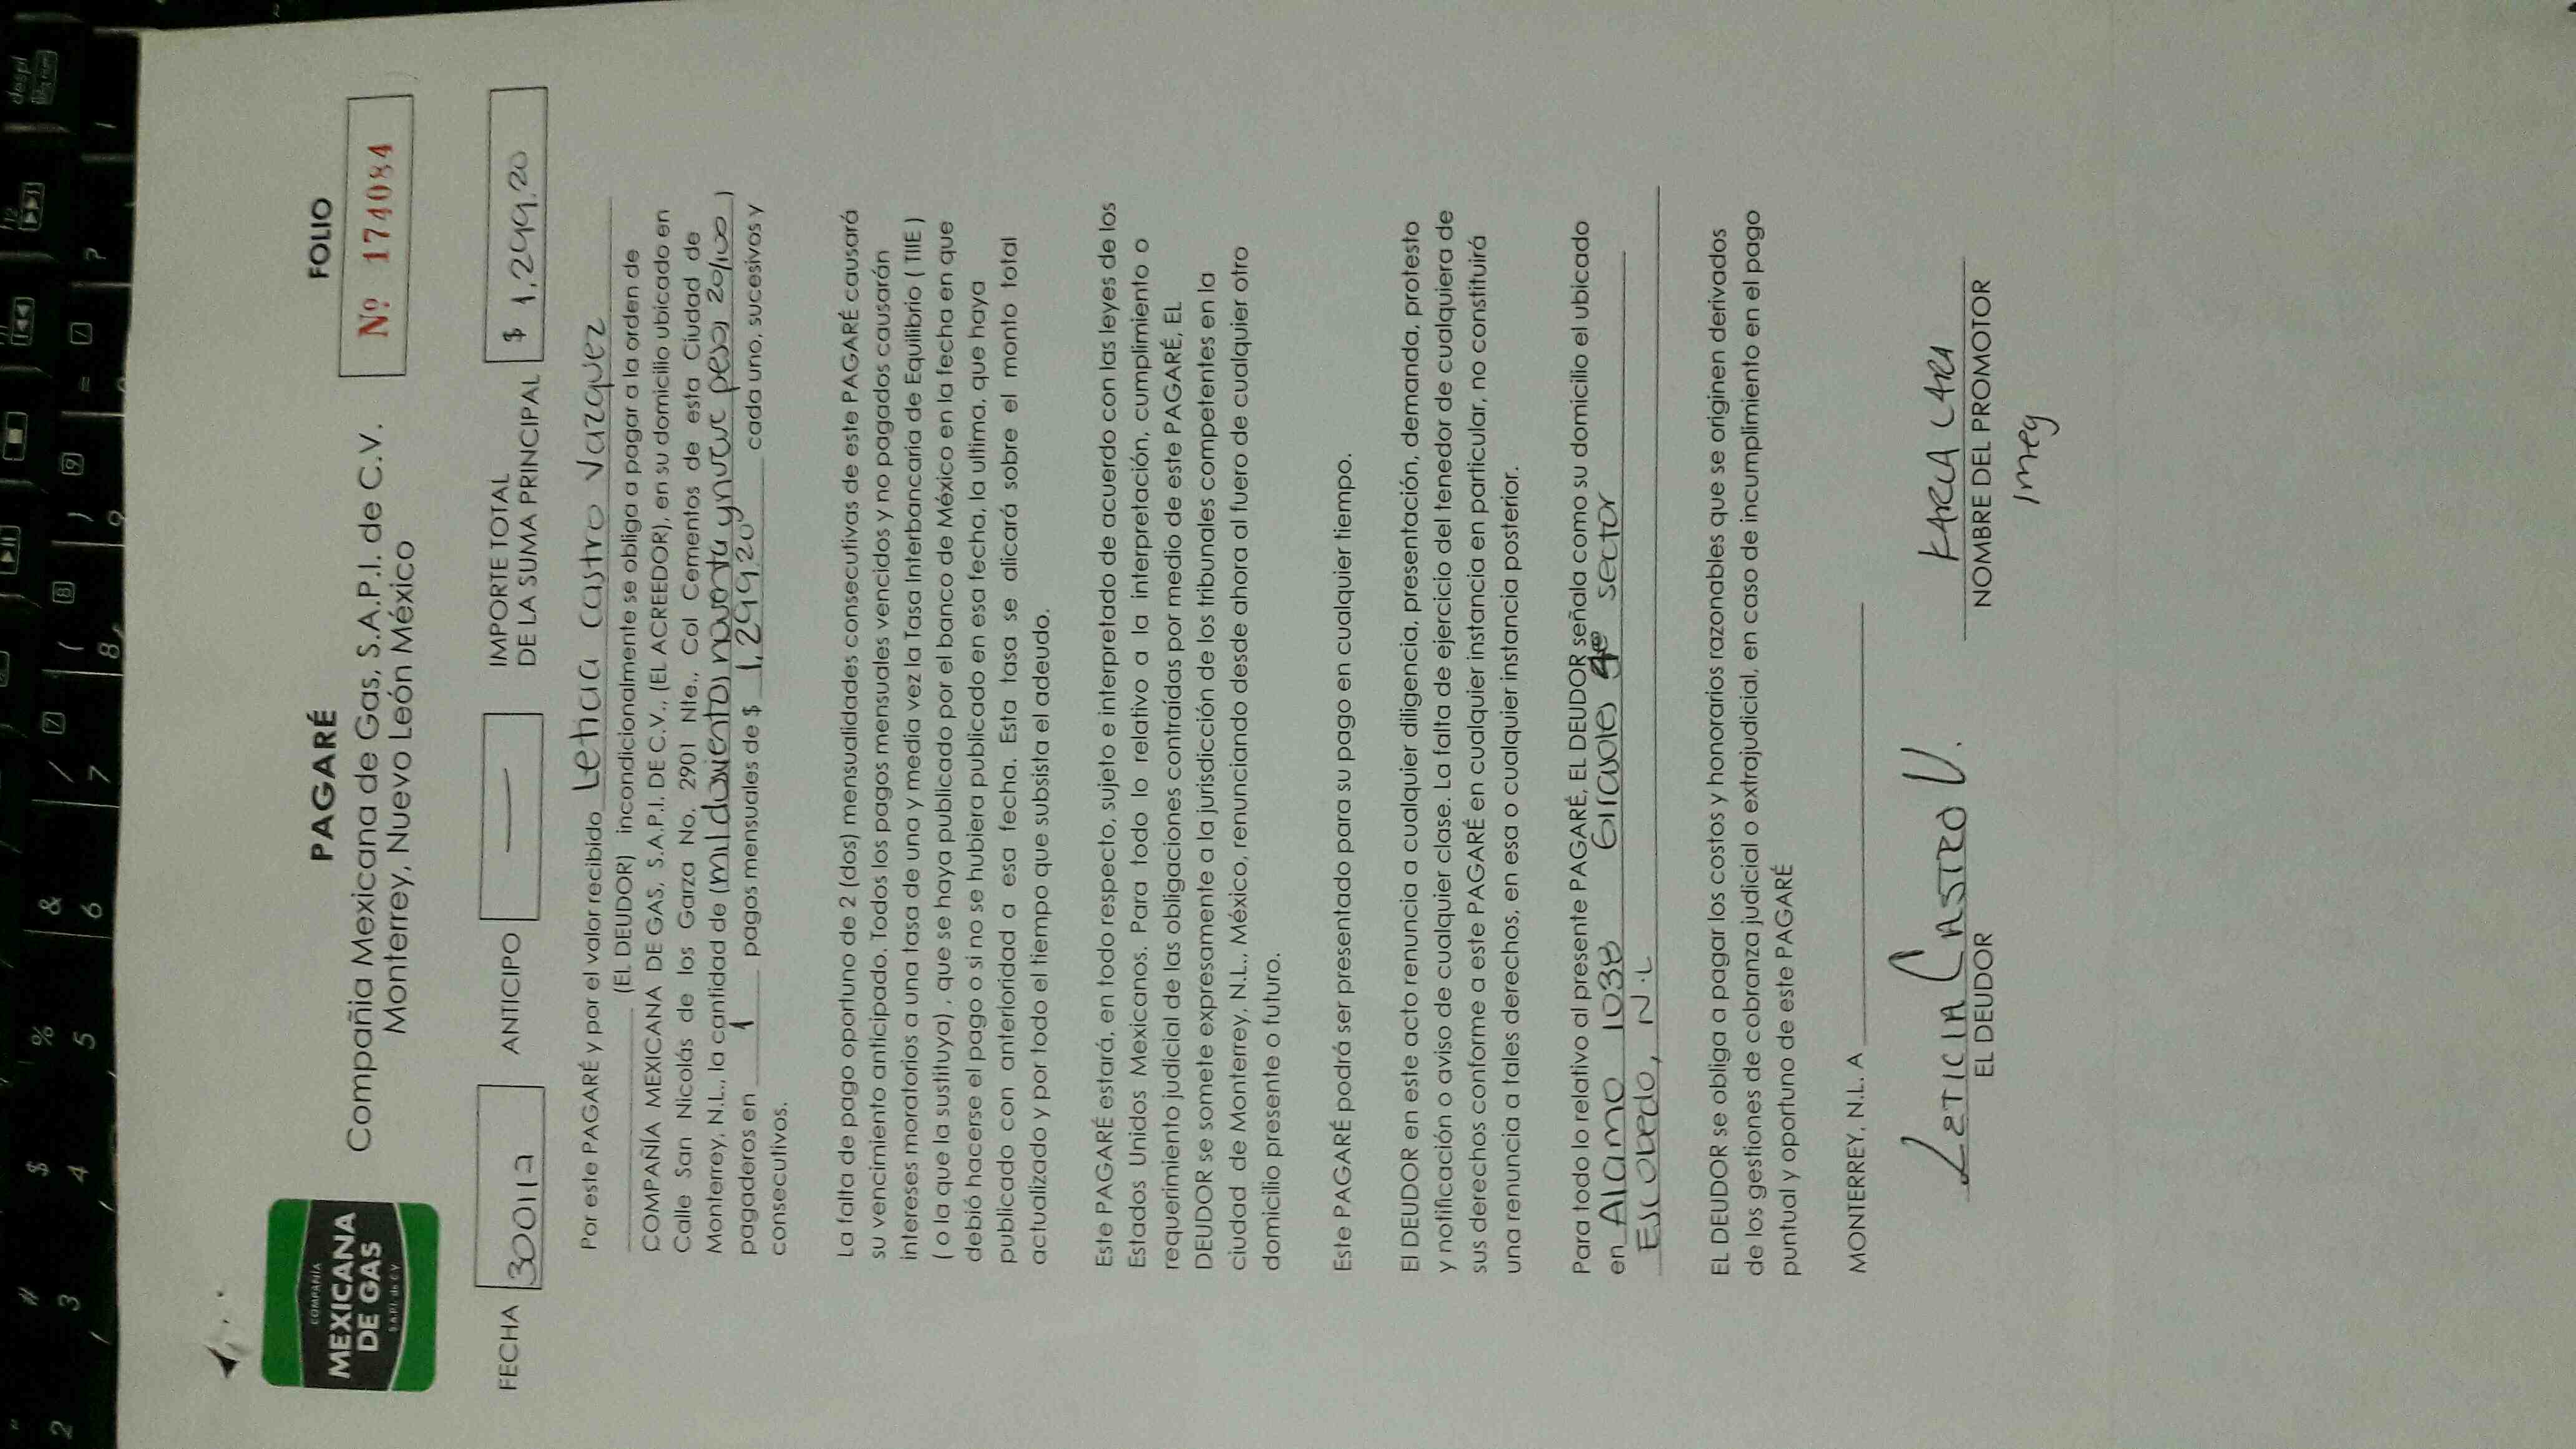 COMPAÑÍA
MEXICANA
DE GAS
S.A.P.I. de C.V.
PAGARÉ
Compañia Mexicana de Gas, S.A.P.I. de C.V.
Monterrey, Nuevo León México
FOLIO
Nº 174084
FECHA 300117 ANTICIPO — IMPORTE TOTAL
DE LA SUMA PRINCIPAL $ 1,299.20
Por este PAGARÉ y por el valor recibido Leticia Castro Vazquez
(EL DEUDOR) incondicionalmente se obliga a pagar a la orden de
COMPAÑÍA MEXICANA DE GAS, S.A.P.I. DE C.V., (EL ACREEDOR), en su domicilio ubicado en
Calle San Nicolás de los Garza No. 2901 Nte., Col Cementos de esta Ciudad de
Monterrey, N.L., la cantidad de (mil doscientos noventa y nueve pesos 20/100 )
pagaderos en 1 pagos mensuales de $ 1,299.20 cada uno, sucesivos y
consecutivos.
La falta de pago oportuno de 2 (dos) mensualidades consecutivas de este PAGARÉ causará
su vencimiento anticipado. Todos los pagos mensuales vencidos y no pagados causarán
intereses moratorios a una tasa de una y media vez la Tasa Interbancaria de Equilibrio ( TIIE )
( o la que la sustituya) , que se haya publicado por el banco de México en la fecha en que
debió hacerse el pago o si no se hubiera publicado en esa fecha, la ultima, que haya
publicado con anterioridad a esa fecha. Esta tasa se alicará sobre el monto total
actualizado y por todo el tiempo que subsista el adeudo.
Este PAGARÉ estará, en todo respecto, sujeto e interpretado de acuerdo con las leyes de los
Estados Unidos Mexicanos. Para todo lo relativo a la interpretación, cumplimiento o
requerimiento judicial de las obligaciones contraídas por medio de este PAGARÉ, EL
DEUDOR se somete expresamente a la jurisdicción de los tribunales competentes en la
ciudad de Monterrey, N.L., México, renunciando desde ahora al fuero de cualquier otro
domicilio presente o futuro.
Este PAGARÉ podrá ser presentado para su pago en cualquier tiempo.
El DEUDOR en este acto renuncia a cualquier diligencia, presentación, demanda, protesto
y notificación o aviso de cualquier clase. La falta de ejercicio del tenedor de cualquiera de
sus derechos conforme a este PAGARÉ en cualquier instancia en particular, no constituirá
una renuncia a tales derechos, en esa o cualquier instancia posterior.
Para todo lo relativo al presente PAGARÉ, EL DEUDOR señala como su domicilio el ubicado
en Alamo 1038 Girasoles sector
Escobedo, N.L
EL DEUDOR se obliga a pagar los costos y honorarios razonables que se originen derivados
de los gestiones de cobranza judicial o extrajudicial, en caso de incumplimiento en el pago
puntual y oportuno de este PAGARÉ
MONTERREY, N.L. A
LETICIA CASTRO V.
EL DEUDOR
KARLA LARA
NOMBRE DEL PROMOTOR
imeg